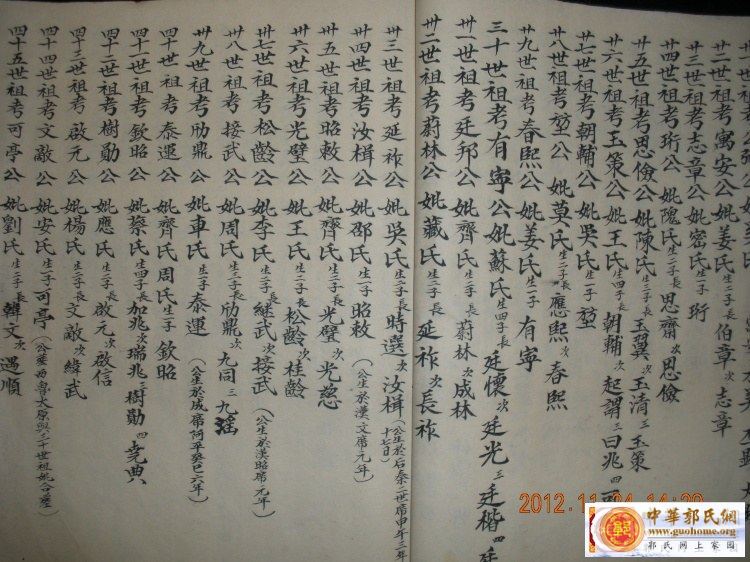 廿二世祖考寓安公妣姜氏生二子長伯章次志章
廿三世祖考志章公妣密氏生一子珩
廿四世祖考珩公妣隗氏生二子長思齋次思儉
廿五世祖考思儉公妣陳氏生三子長玉翼次玉清三玉策
廿六世祖考玉策公妣王氏生四子長朝輔次起謂三曰兆四
廿七世祖考朝輔公妣吳氏生一子堃
廿八世祖考堃公妣莫氏生二子長應熙次春熙
廿九世祖考春熙公妣姜氏生一子有寧
三十世祖考有寧公妣蘇氏生四子長廷懷次廷光三廷楷四廷
卅一世祖考廷邦公妣齊氏生二子長蔚林次成林
卅二世祖考蔚林公妣臧氏生二子長延祚次長祚
卅三世祖考延祚公妣吳氏生二子長時選次汝楫(公生於后秦二世席甲午三年十七日)
卅四世祖考汝楫公妣邵氏生一子昭敕(公生於漢文席元年)
卅五世祖考昭敕公妣齊氏生二子長光璧次光慈
卅六世祖考光璧公妣王氏生二子長松齡次桂齡
卅七世祖考松齡公妣李氏生二子長繼武次接武(公生於漢昭席元年)
卅八世祖考接武公妣周氏生三子長肋鼎次九同三九滛
卅九世祖考肋鼎公妣車氏生一子泰運(公生於成席阿平癸巳六年)
四十世祖考泰運公妣齊氏周氏生一子欽昭
四十一世祖考欽昭公妣蔡氏生四子長加兆次瑞兆三樹勛四堯典
四十二世祖考樹勛公妣應氏生二子長啟元次啟信
四十三世祖考啟元公妣楊氏生二子長文敵次緯武
四十四世祖考文敵公妣安氏生一子可亭(公葬西魯太原與三十世祖妣合墓)
四十五世祖考可亭公妣劉氏生二子長韓文次遇順
2012.11.24 14:20
中華郭氏網
www.guohome.org
郭氏網上家園